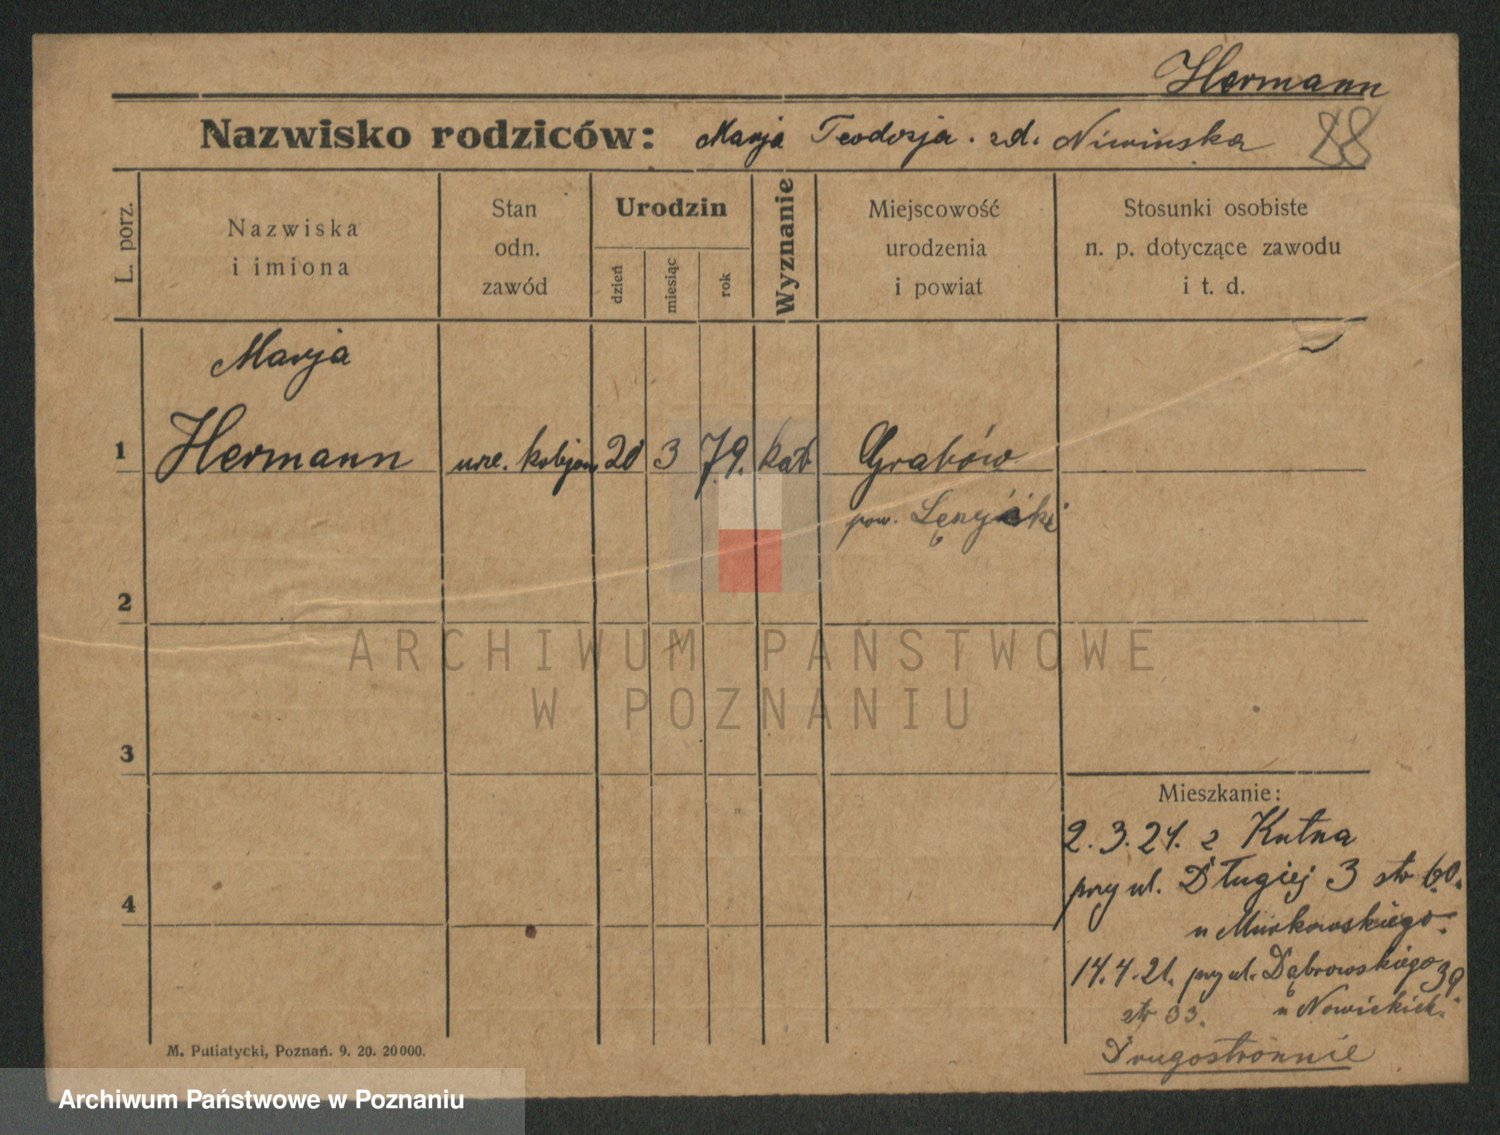 Hermann
Nazwisko rodziców: Marja Teodozja. zd. Niwińska
88
L. porz.
Nazwiska
i imiona
Stan
odn.
zawód
Urodzin
dzień
miesiąc
rok
Wyznanie
Miejscowość
urodzenia
i powiat
Stosunki osobiste
n. p. dotyczące zawodu
i t. d.
Marja
1 Hermann urz. kolejow. 20 3 79. kat. Grabów
pow. Łęczycki
2
3
4
Mieszkanie:
2.3.21. z Kutna
przy ul. Długiej 3 str 60.
u Murkowskiego.
14.4.21. przy ul. Dąbrowskiego 39
str 33. u Nowickich.
Drugostronnie
M. Putiatycki, Poznań. 9. 20. 20000.
ARCHIWUM PAŃSTWOWE
W POZNANIU
Archiwum Państwowe w Poznaniu